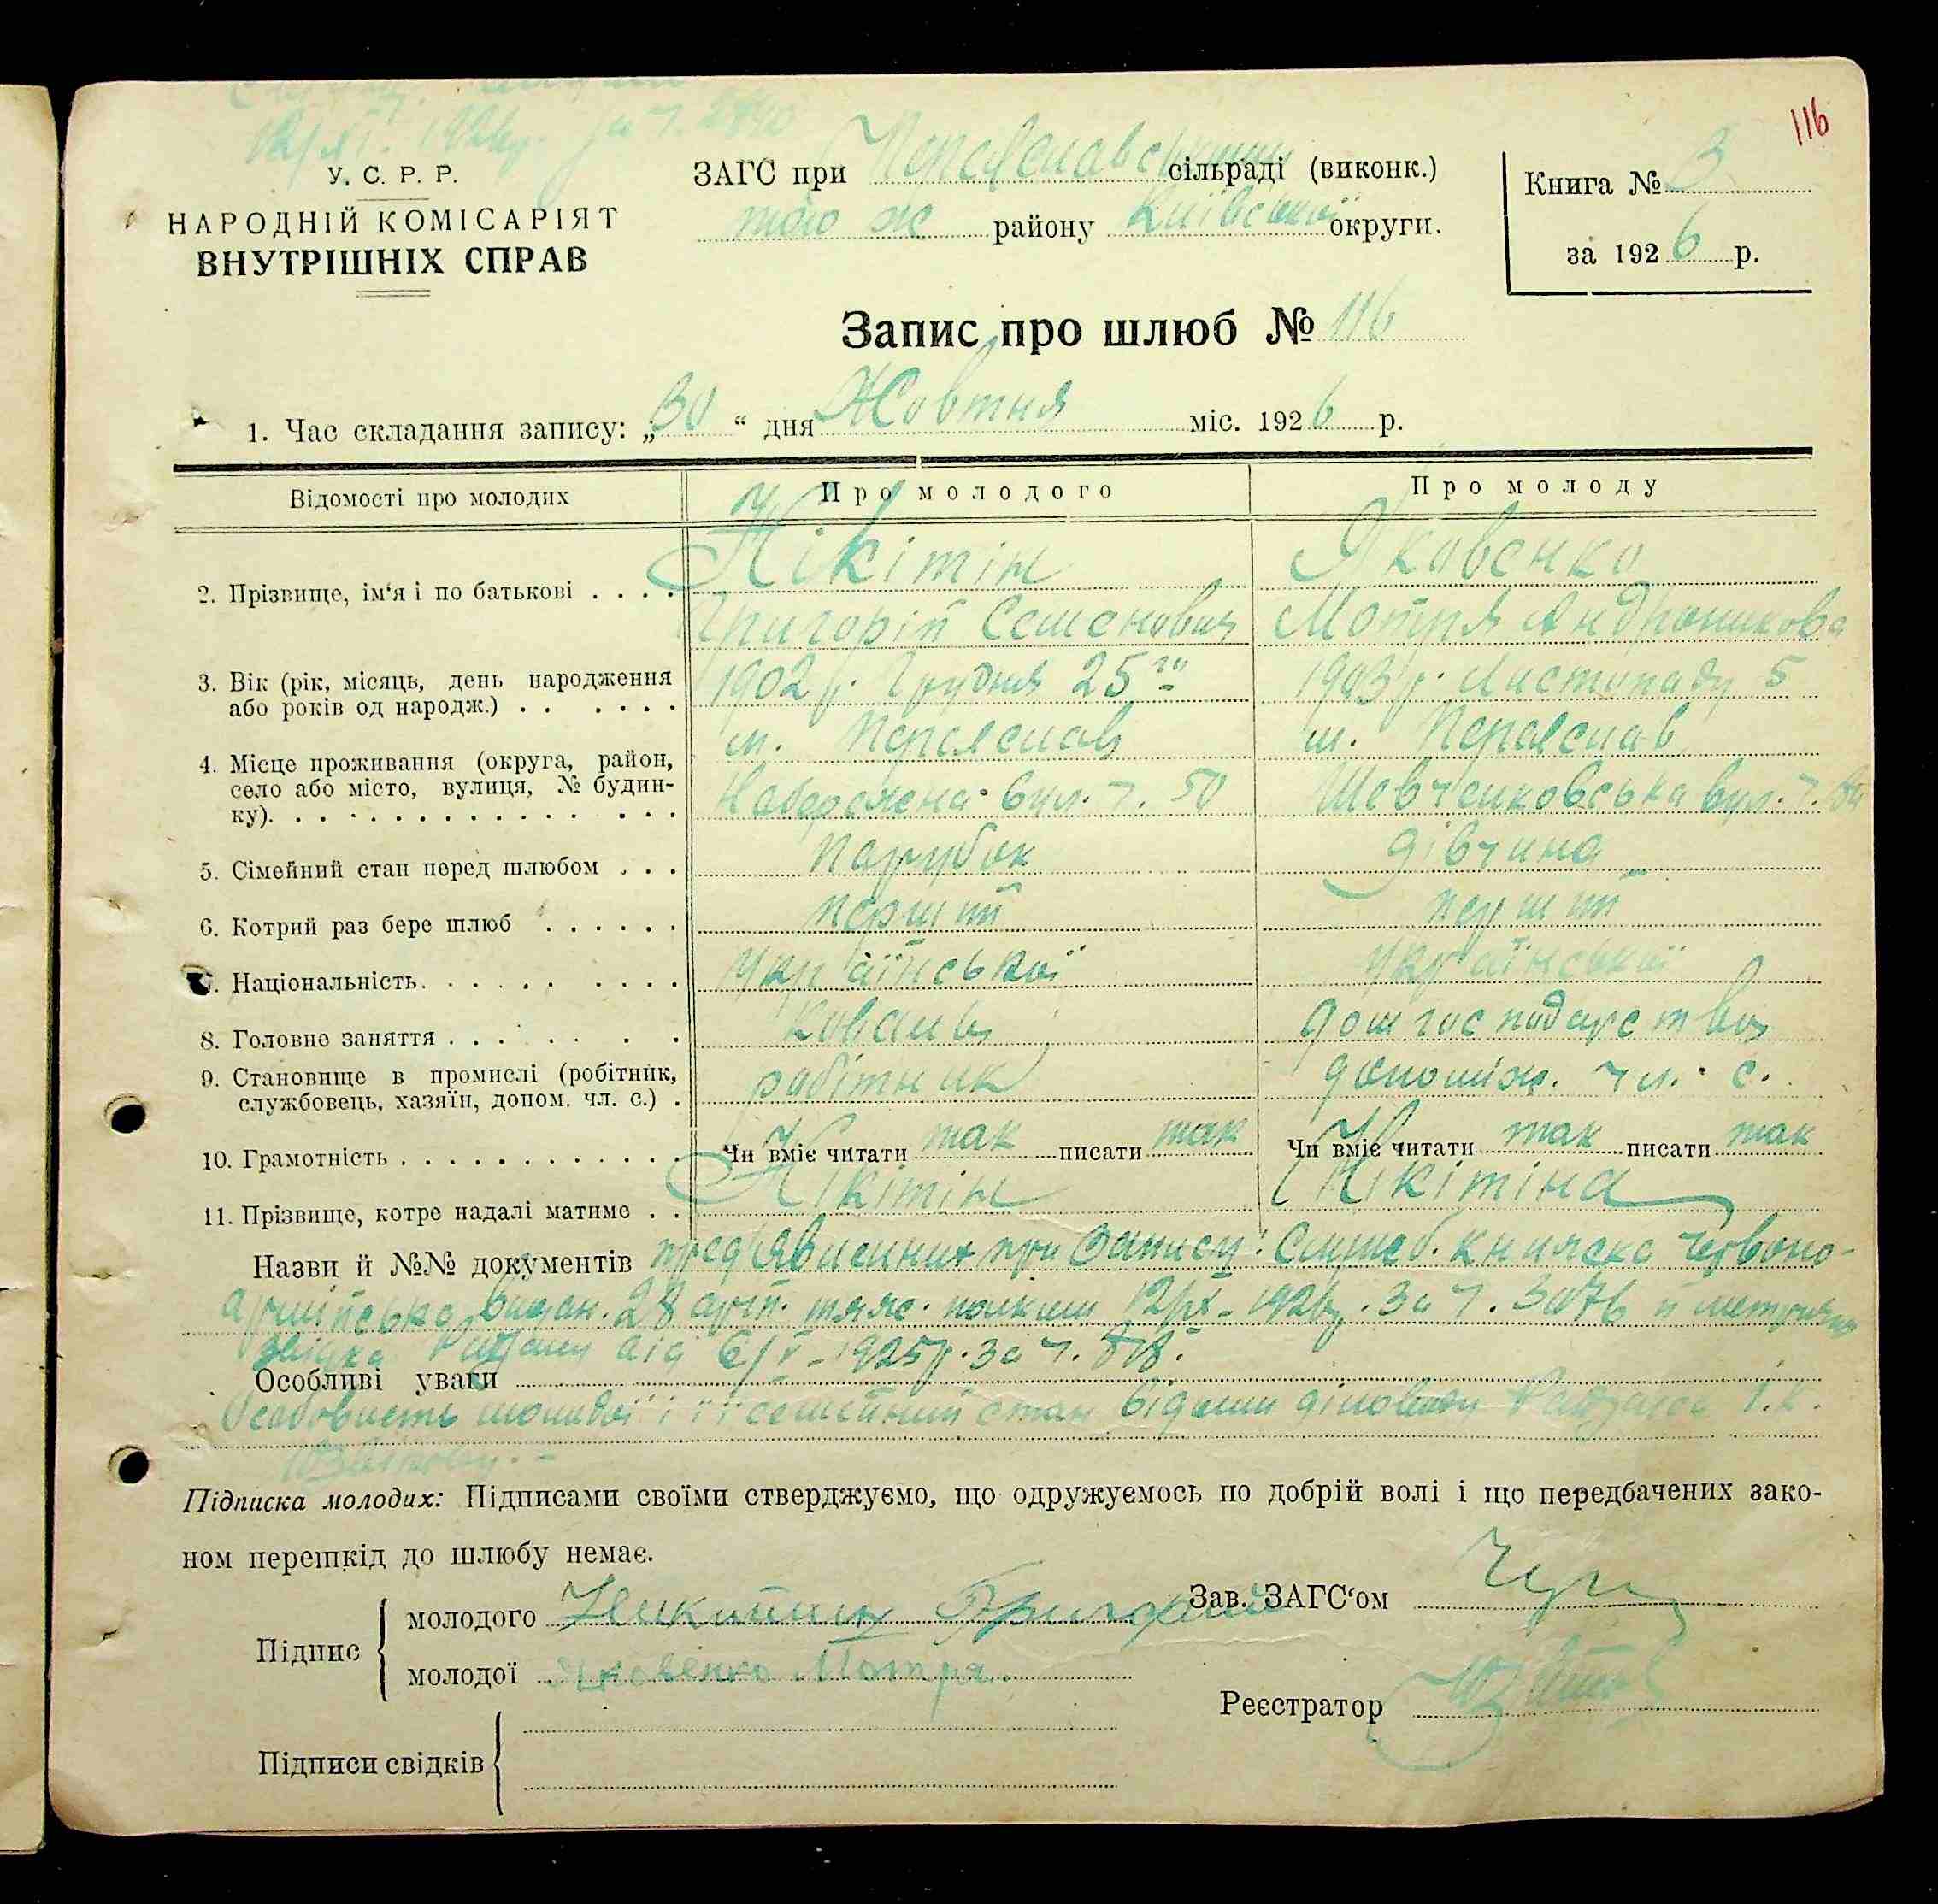 12/XI. 1926р. за ч. 2890
116
У. С. Р. Р.
НАРОДНІЙ КОМІСАРІЯТ
ВНУТРІШНІХ СПРАВ
ЗАГС при Переяславському сільраді (виконк.)
того ж району Київської округи.
Книга № 3
за 1926 р.
Запис про шлюб № 116
1. Час складання запису: „30“ дня Жовтня міс. 1926 р.
Відомості про молодих Про молодого Про молоду
2. Прізвище, ім‘я і по батькові . . . . Нікітін Яковенко
Григорій Семенович Мотря Андроникова
3. Вік (рік, місяць, день народження 1902 р. Грудня 25го 1903 р. Листопаду 5
або років од народж.) . . . . . .
4. Місце проживання (округа, район, м. Переяслав м. Переяслав
село або місто, вулиця, № будин- Набережна вул. ч. 50 Шевченковська вул. ч.
ку). . . . . . . . . . . . . . . .
5. Сімейний стан перед шлюбом . . . парубок дівчина
6. Котрий раз бере шлюб . . . . . . перший перший
7. Національність. . . . . . . . . . української української
8. Головне заняття . . . . . . . коваль дом господарство
9. Становище в промислі (робітник, робітник допоміж. чл. с.
службовець, хазяїн, допом. чл. с.) .
10. Грамотність . . . . . . . . . . . . Чи вміє читати так писати так Чи вміє читати так писати так
11. Прізвище, котре надалі матиме . . Нікітін Нікітіна
Назви й №№ документів пред'явлених при записі: Служб. книжка червоно-
армійська, видан. 28 арт. тяж. полком 12/IX-1926р. за ч. 3076 й метрична
від 6/V-1925р. за ч. 878.
Особливі уваги
Особовість молодої і її семейний стан відомі діловоду І. К.
Підписка молодих: Підписами своїми стверджуємо, що одружуємось по добрій волі і що передбачених зако-
ном перешкід до шлюбу немає.
Підпис
молодого Никитин Григорий
молодої Яковенко Мотря.
Зав. ЗАГС‘ом
Реєстратор
Підписи свідків